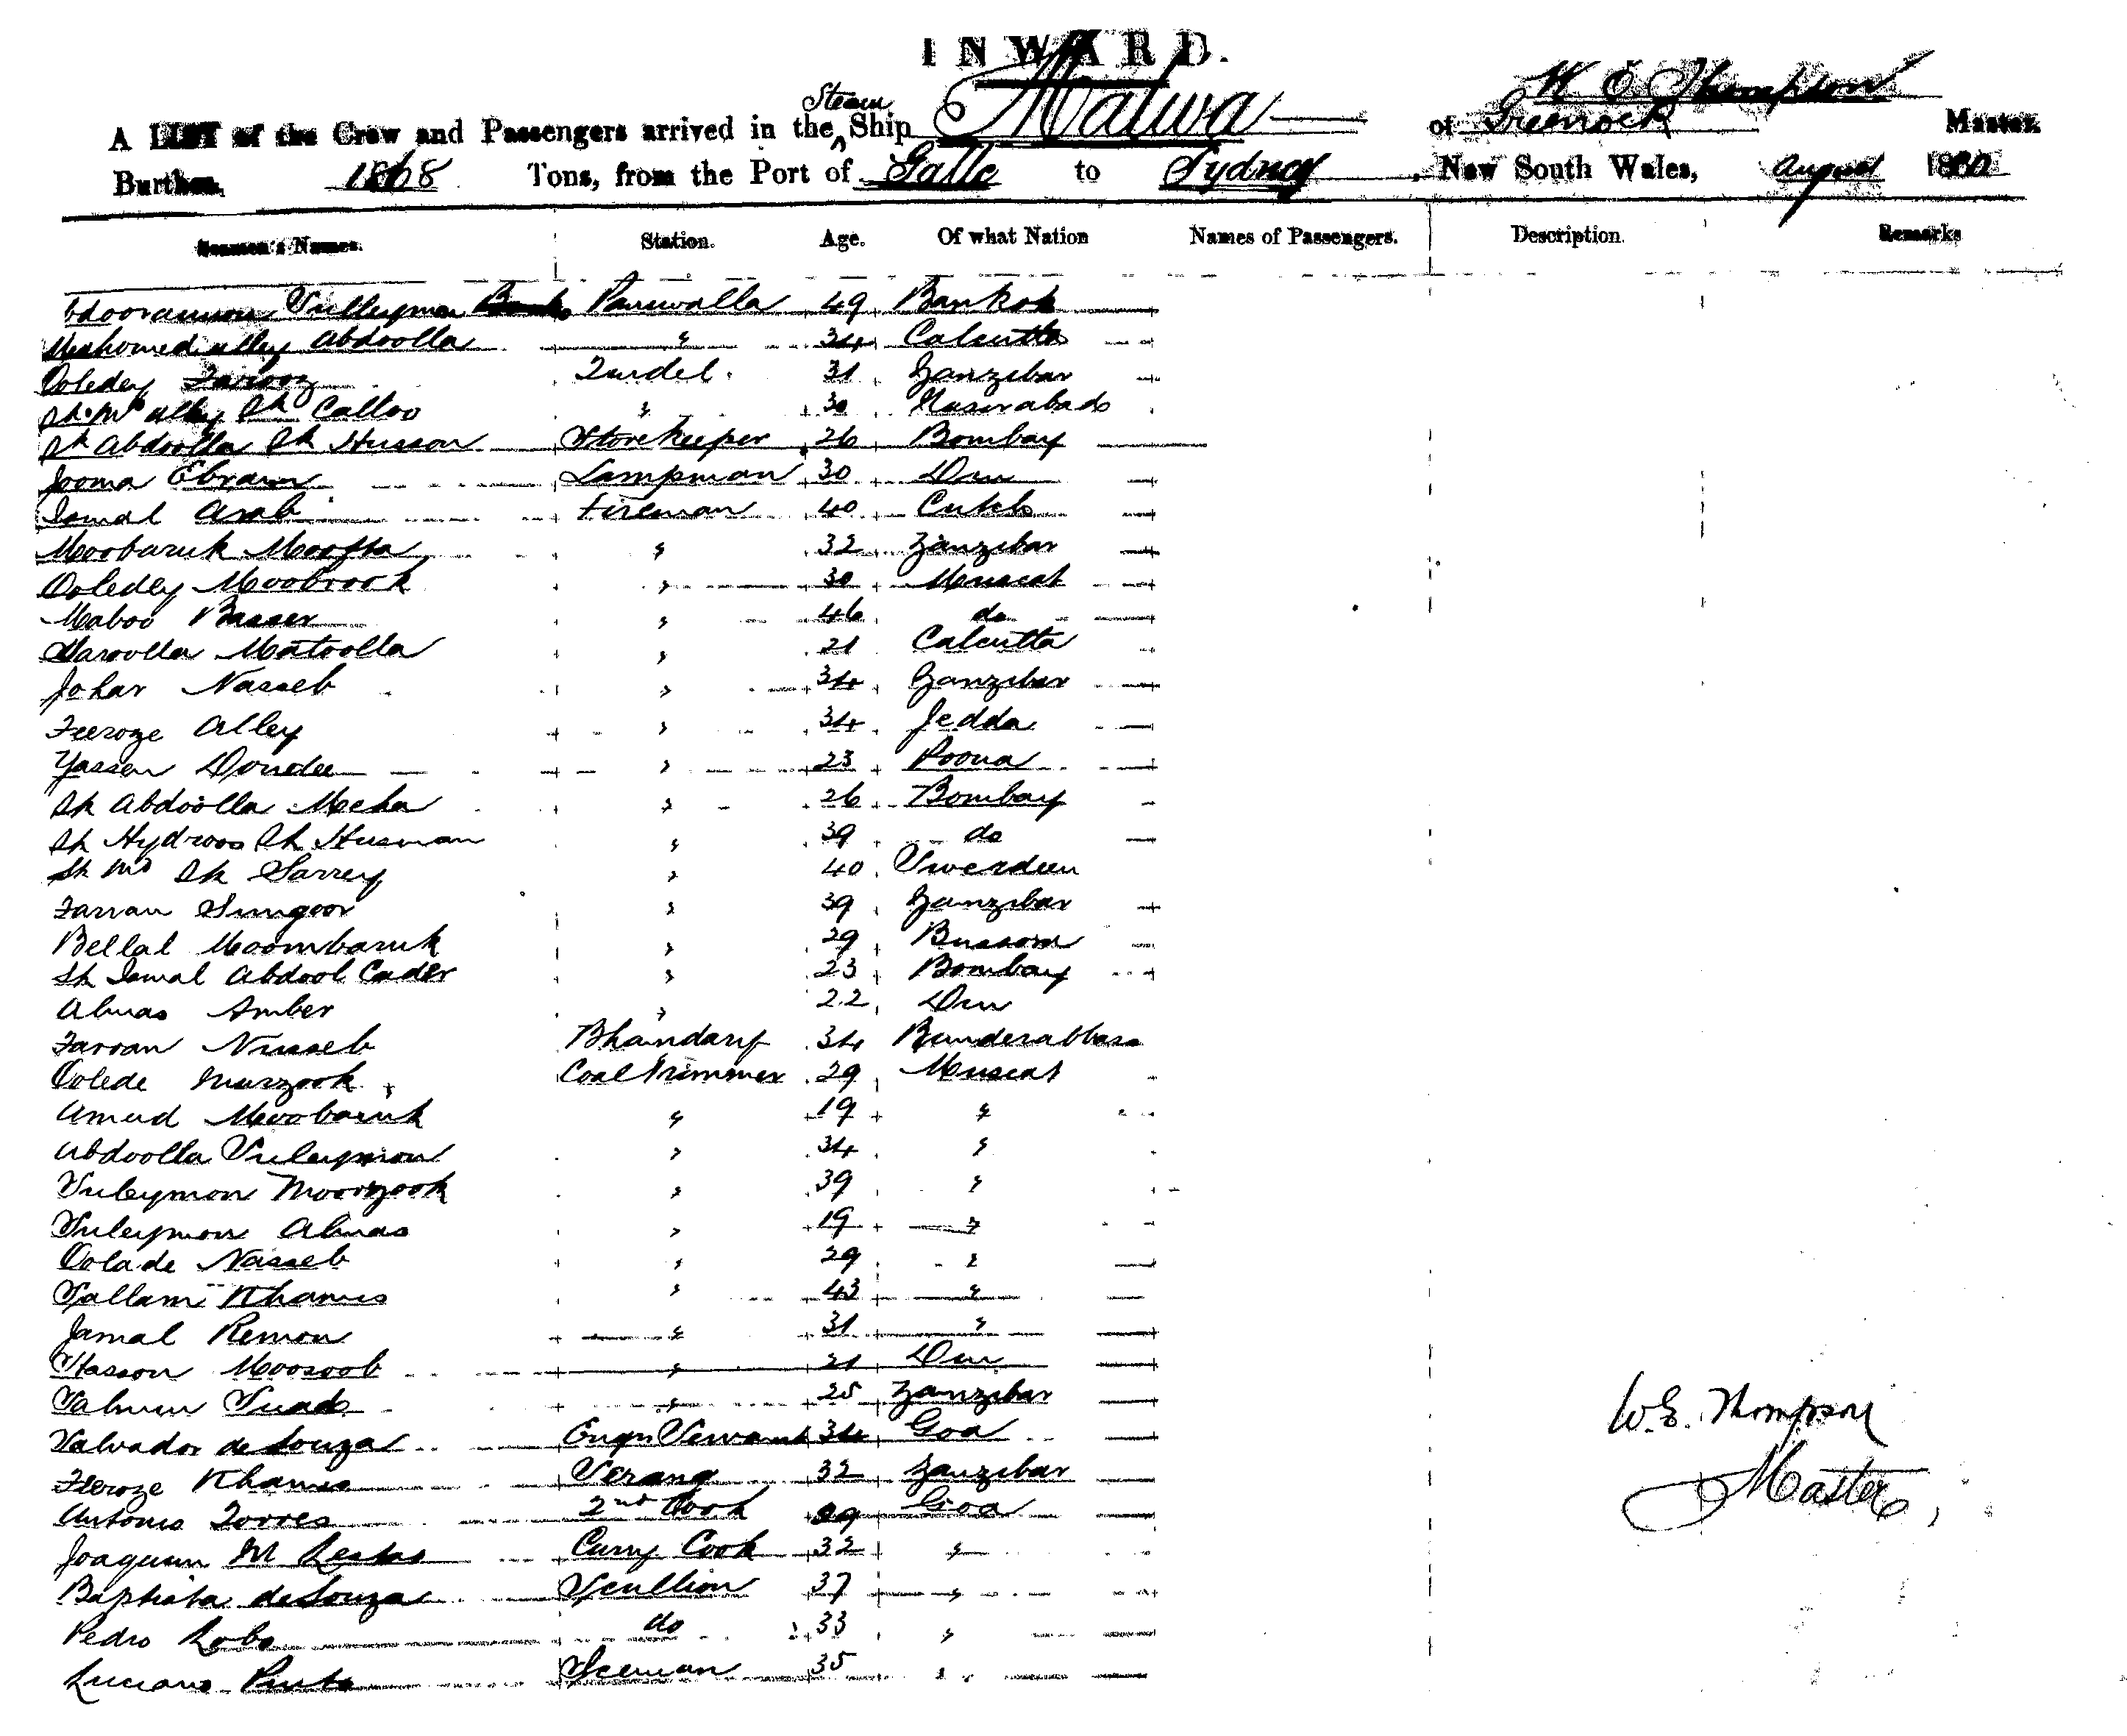 INWARD.
A LIST of the Crew and Passengers arrived in the Steam Ship Malwa of Greenock W E Thompson Master.
Burthen, 1868 Tons, from the Port of Galle to Sydney, New South Wales, August 1880
Seamen's Names. Station. Age. Of what Nation Names of Passengers. Description. Remarks
Sulleyman 49 Bankok
Mahomed Alley Abdoolla " 34 Calcutta
Ooledey Farooz Tindel. 31 Zanzibar
Sk Md Alley Sk Calloo " 30 Nasirabad
Sk Abdoolla Sk Husson Storekeeper 26 Bombay
Jooma Ebram Lampman 30 Diu
Ismal Arab Fireman 40 Cutch
Moobaruk Moofta " 32 Zanzibar
Ooledey Moobrook " 30 Muscat
Maboo Basser " 46 do
Matoolla " 21 Calcutta
Johar Nasseb " 34 Zanzibar
Feeroze Alley " 34 Jedda
Yassen Dondee " 23 Poona
Sk Abdoolla Mecha " 26 Bombay
Sk Hydroos Sk Husman " 39 do
Sk Md Sk Sarrey " 40
Farran Sungoor " 39 Zanzibar
Bellal Moombaruk " 29 Bussora
Sk Ismal Abdool Cader " 23 Bombay
Almas Amber " 22 Diu
Farran Nusseb Bhandary 34 Bunderabbass
Oolede Murzook Coal Trimmer 29 Muscat
Amud Moobaruk " 19 "
Abdoolla Suleymon " 34 "
Suleymon Moorzook " 39 "
Suleymon Almas " 19 "
Oolade Nasseb " 29 "
Sallam Khamis " 43 "
Jamal Remon " 31 "
Hasson Moosoob " 21 Diu
Salmin Suad " 25 Zanzibar
Salvador de Souza Engrs Servant 34 Goa
Feeroze Khamis Serang 32 Zanzibar
Antonio Torres 2nd Cook 29 Goa
Joaquim M Curry Cook 32 "
Baptista de Souza Scullion 37 "
Pedro Lobo do 33 "
Luciano Pinto Iceman 35 "
W.E. Thompson
Master